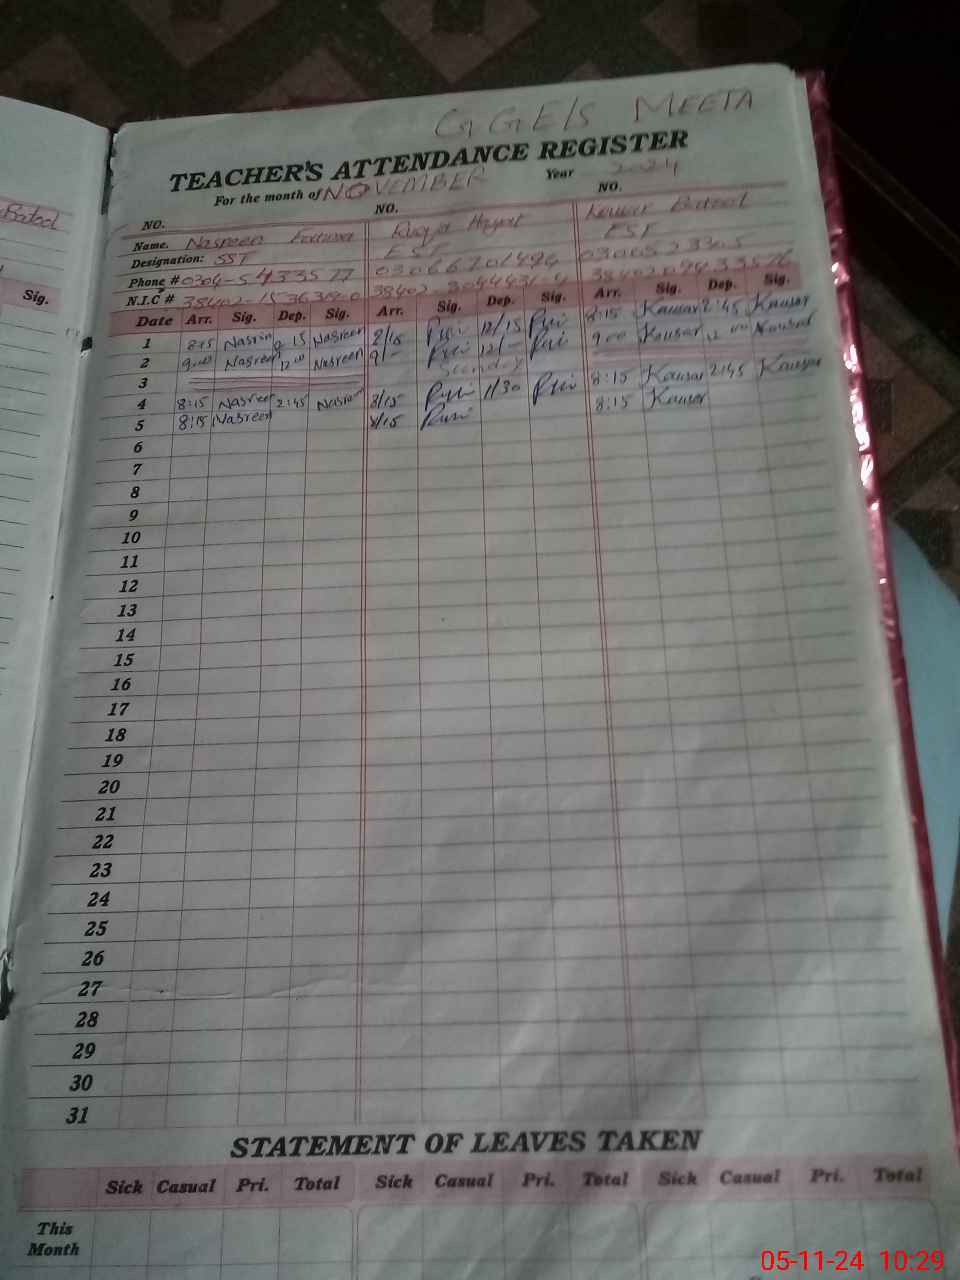 GGE/S MEETA
TEACHER'S ATTENDANCE REGISTER
For the month of NOVEMBER Year 2024
NO. NO. NO.
Name. Nasreen Hayat Kausar Batool
Designation: SST EST EST
Phone # 0304-5433577
N.I.C #
Date Arr. Sig. Dep. Sig. Arr. Sig. Dep. Sig. Arr. Sig. Dep. Sig.
1 8:15 Nasrin 15 Nasreen 8/15 12/15 8:15 Kausar 2:45 Kausar
2 9:00 Nasreen 12:00 Nasreen 9/- 12/- 9:00 Kausar 12:00 Kausar
3 Sunday
4 8:15 Nasreen 2:45 Nasreen 8/15 1/30 8:15 Kausar 2:45 Kausar
5 8:15 Nasreen 8/15 8:15 Kausar
6
7
8
9
10
11
12
13
14
15
16
17
18
19
20
21
22
23
24
25
26
27
28
29
30
31
STATEMENT OF LEAVES TAKEN
Sick Casual Pri. Total Sick Casual Pri. Total Sick Casual Pri. Total
This
Month
Batool
Sig.
05-11-24 10:29